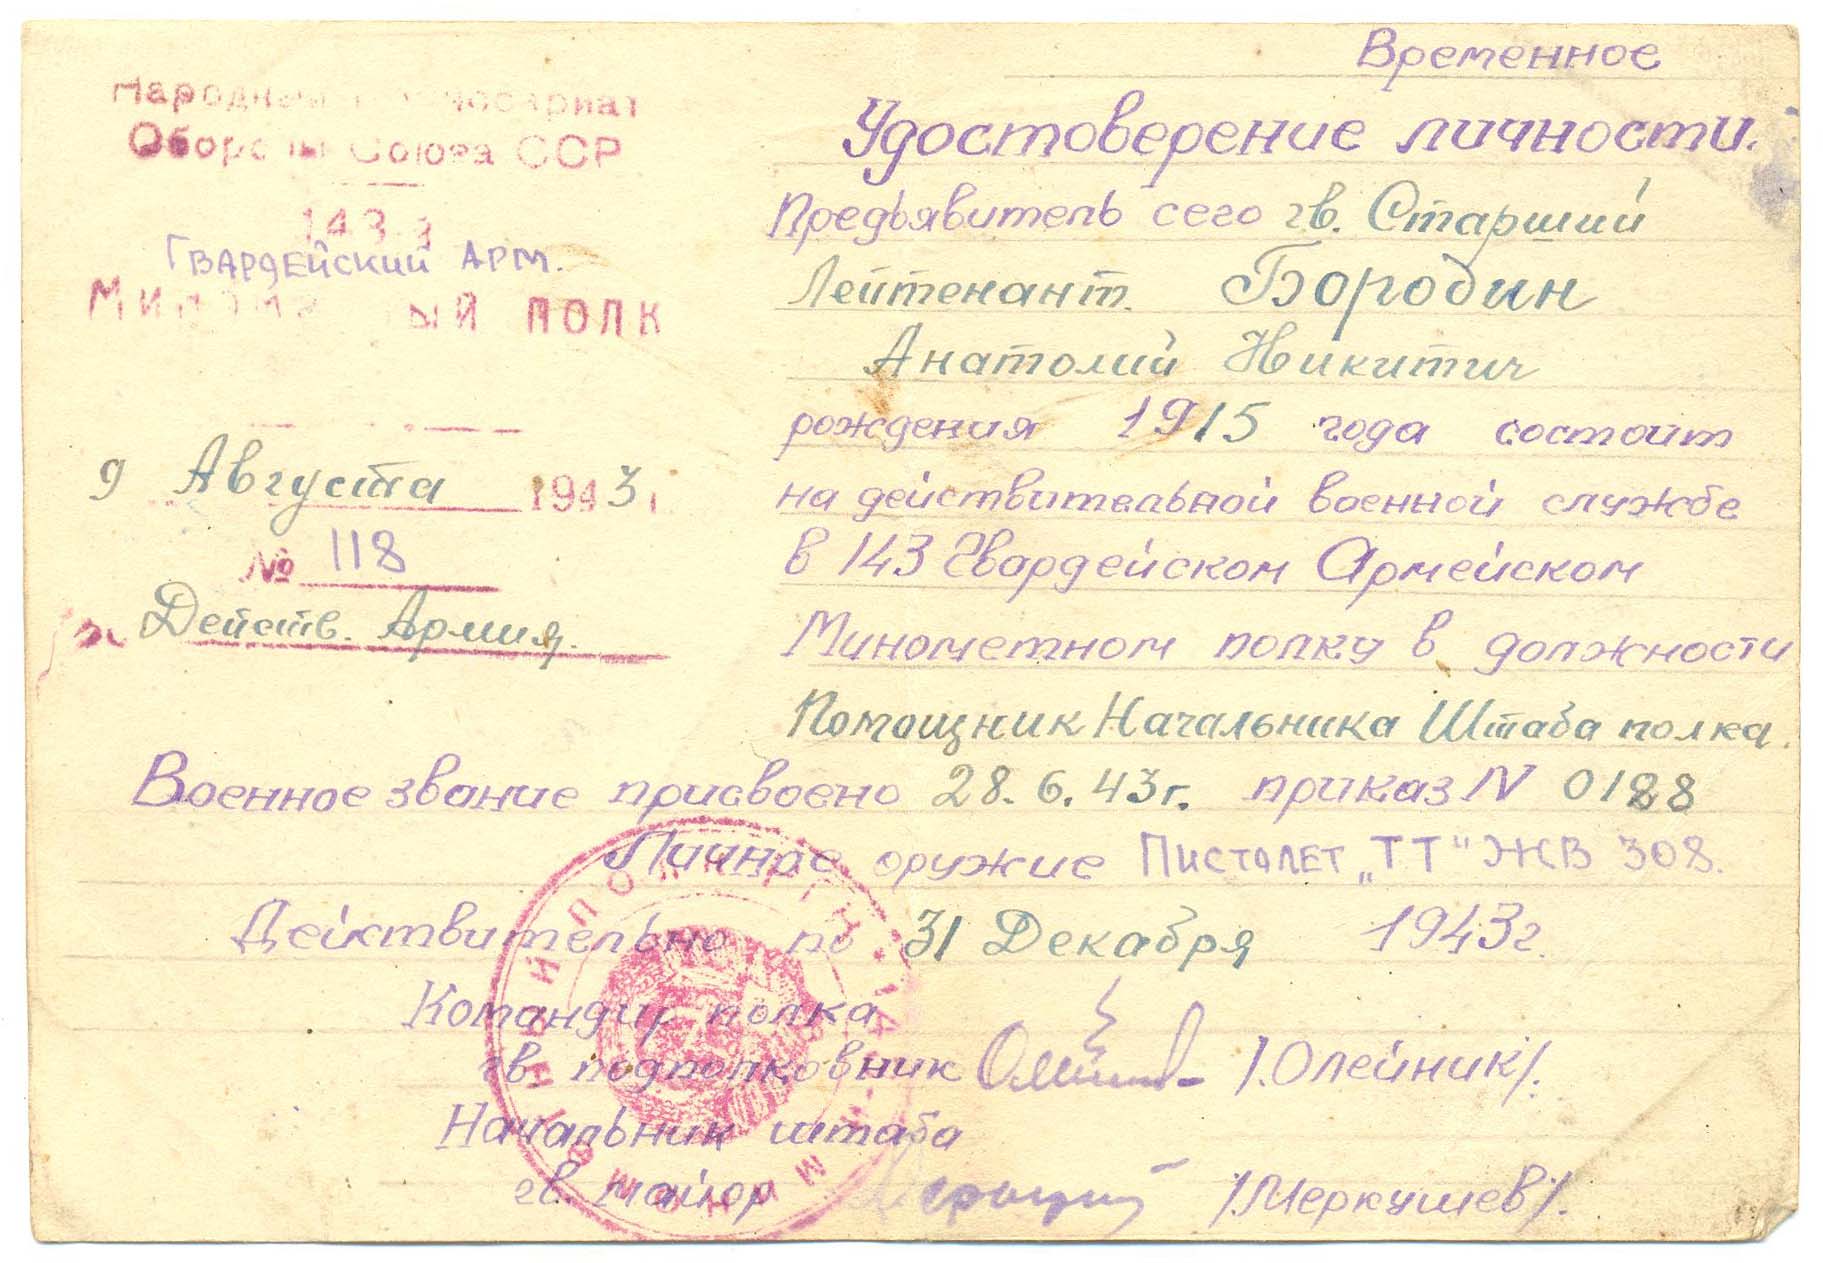 Народный Комиссариат
Обороны Союза ССР
143-й
Гвардейский Арм.
Минометный полк
9 Августа 1943 г.
№ 118
Действ. Армия.
Временное
Удостоверение личности.
Предъявитель сего гв. Старший
Лейтенант Бородин
Анатолий Никитич
рождения 1915 года состоит
на действительной военной службе
в 143 Гвардейском Армейском
Минометном полку в должности
Помощник Начальника Штаба полка.
Военное звание присвоено 28.6.43г. приказ N 0188
Личное оружие Пистолет „ТТ“ ЖВ 308.
Действительно по 31 Декабря 1943г.
Командир полка
гв. подполковник /.Олейник/.
Начальник штаба
гв. майор /.Меркушев/.